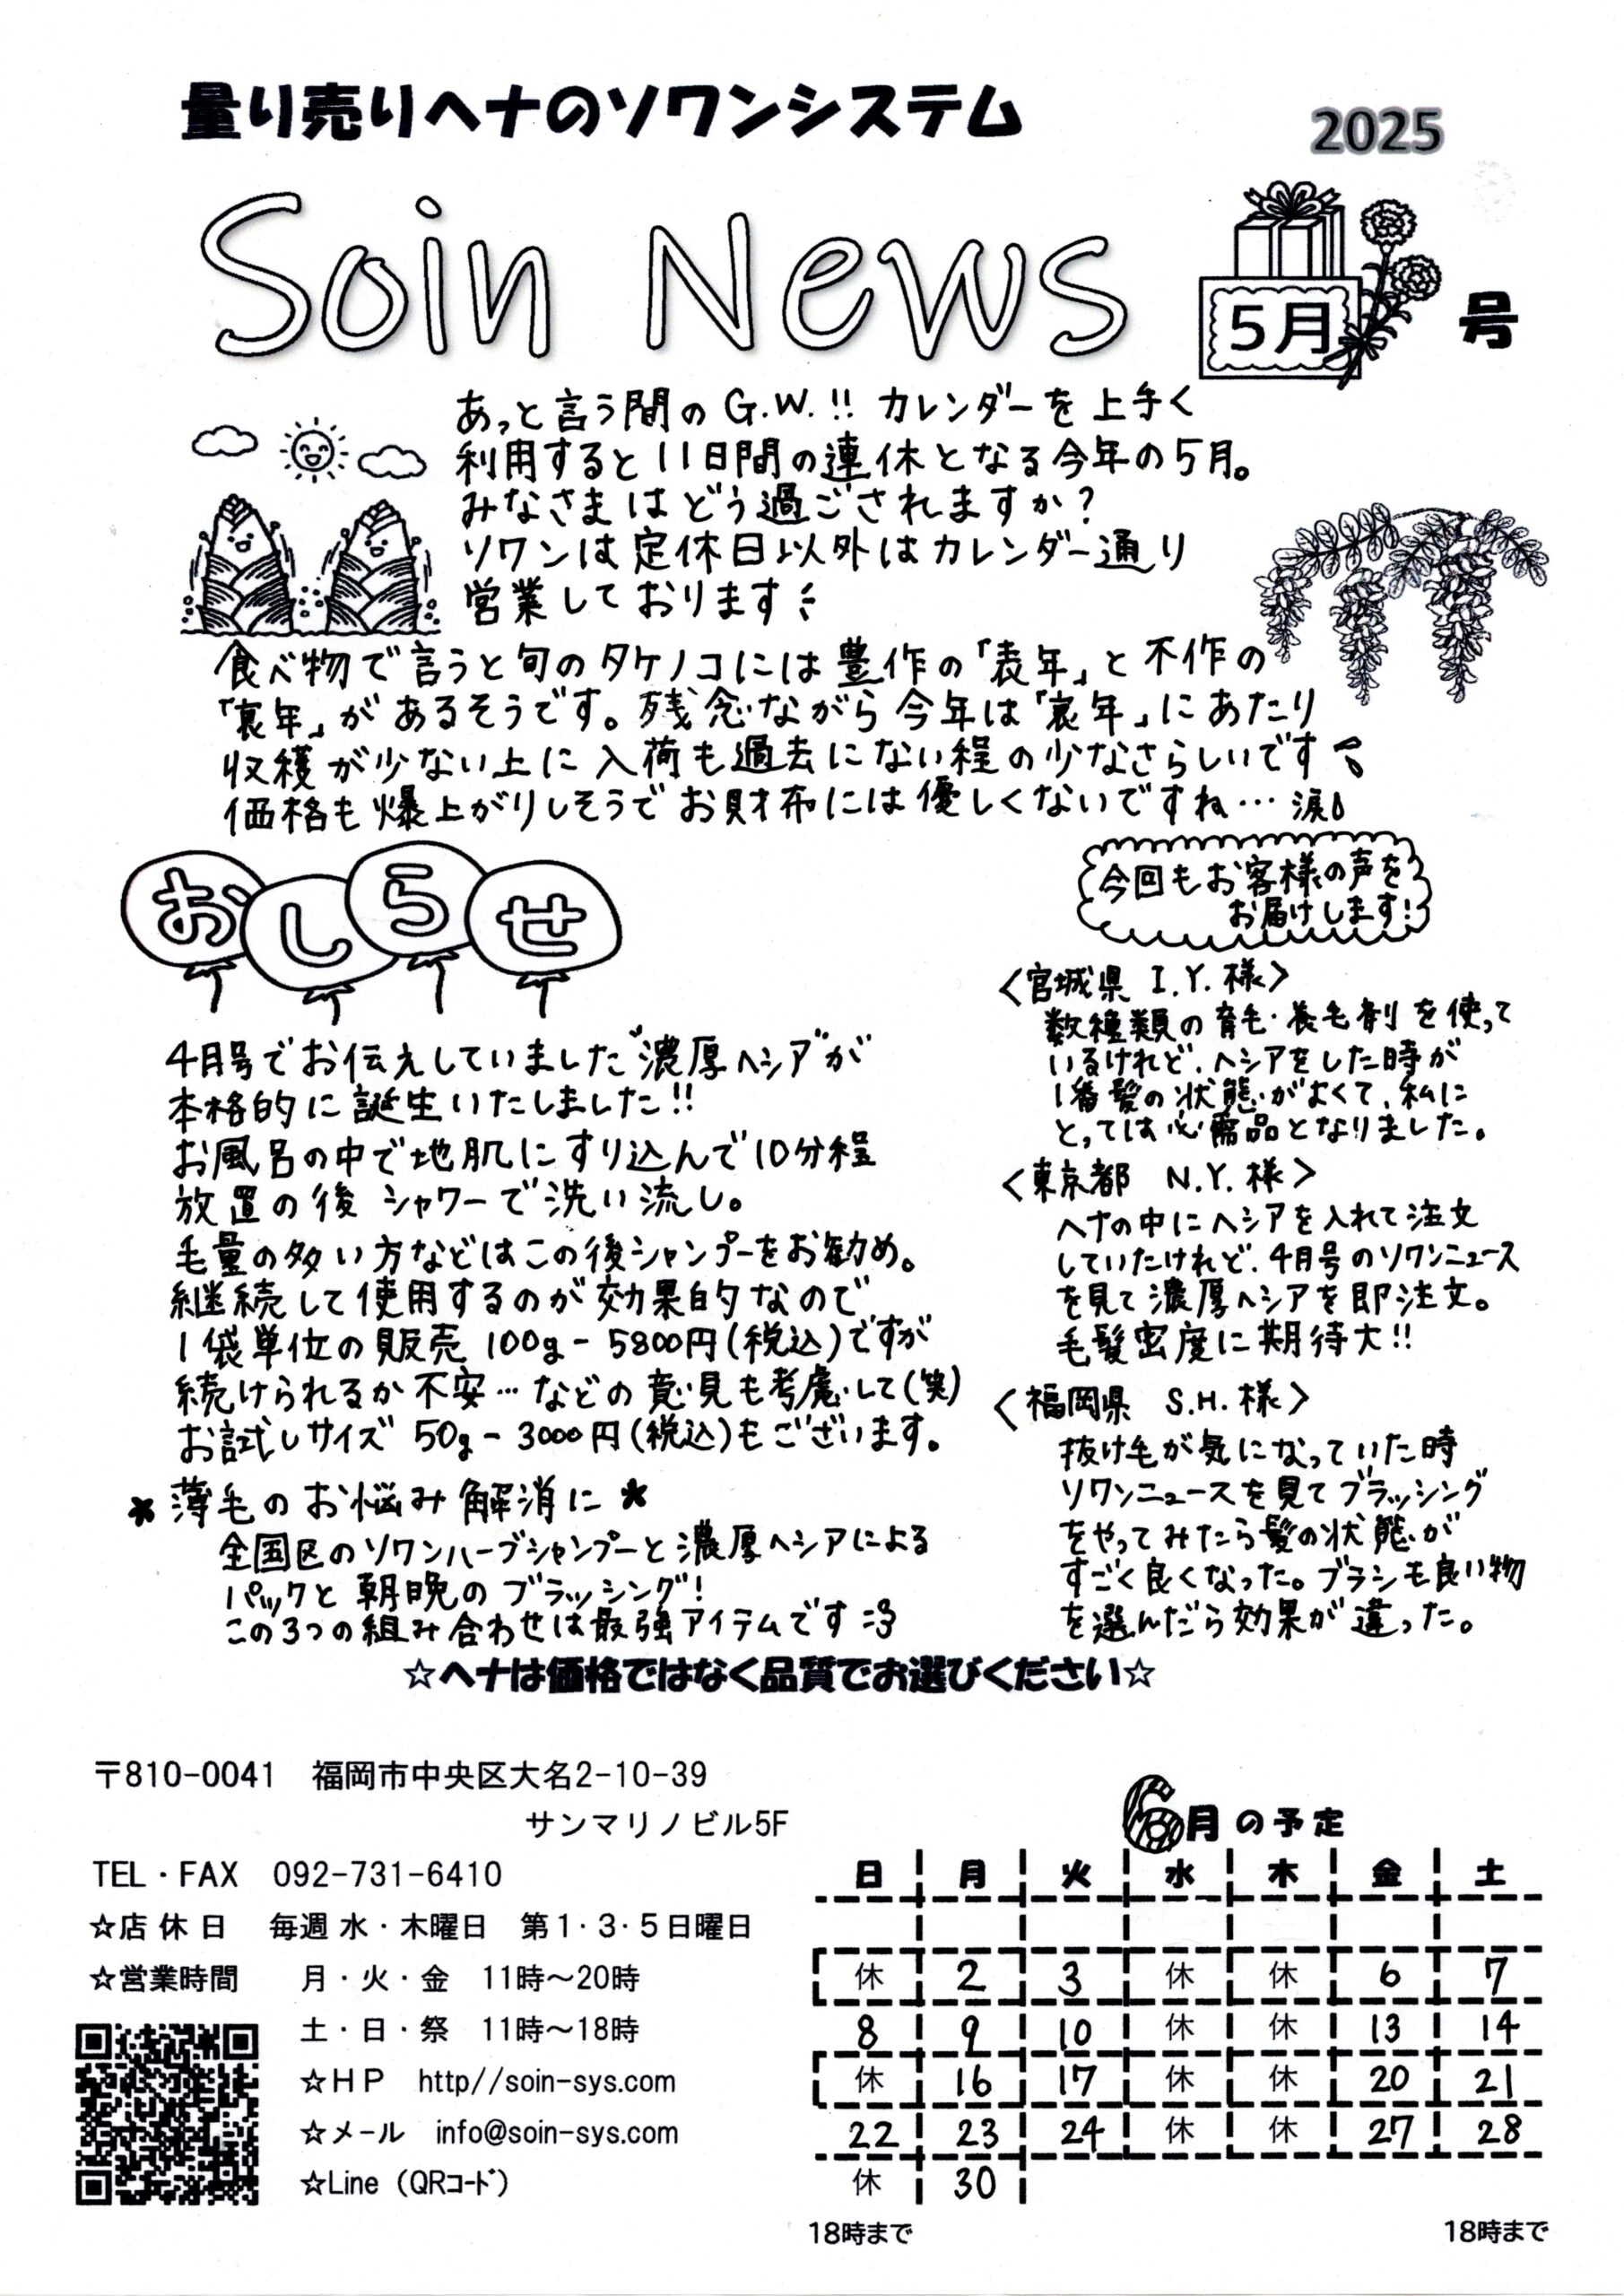 量り売りヘナのソワンシステム
2025
Soin News
5月
号
あっと言う間のG.W.!! カレンダーを上手く
利用すると11日間の連休となる今年の5月。
みなさまはどう過ごされますか?
ソワンは定休日以外はカレンダー通り
営業しております
食べ物で言うと旬のタケノコには豊作の「表年」と不作の
「裏年」があるそうです。残念ながら今年は「裏年」にあたり
収穫が少ない上に入荷も過去にない程の少なさらしいです
価格も爆上がりしそうでお財布には優しくないですね…涙
おしらせ
4月号でお伝えしていました"濃厚ヘシア"が
本格的に誕生いたしました!!
お風呂の中で地肌にすり込んで10分程
放置の後 シャワーで洗い流し。
毛量の多い方などはこの後シャンプーをお勧め。
継続して使用するのが効果的なので
1袋単位の販売 100g-5800円(税込)ですが
続けられるか不安…などの意見も考慮して(笑)
お試しサイズ 50g-3000円(税込)もございます。
*薄毛のお悩み解消に*
全国区のソワンハーブシャンプーと濃厚ヘシアによる
パックと朝晩のブラッシング!
この3つの組み合わせは最強アイテムです
今回もお客様の声を
お届けします!
<宮城県 I.Y.様>
数種類の育毛・養毛剤を使って
いるけれど、ヘシアをした時が
1番髪の状態がよくて、私に
とっては必需品となりました。
<東京都 N.Y.様>
ヘナの中にヘシアを入れて注文
していたけれど、4月号のソワンニュース
を見て濃厚ヘシアを即注文。
毛髪密度に期待大!!
<福岡県 S.H.様>
抜け毛が気になっていた時
ソワンニュースを見てブラッシング
をやってみたら髪の状態が
すごく良くなった。ブラシも良い物
を選んだら効果が違った。
☆ヘナは価格ではなく品質でお選びください☆
〒810-0041 福岡市中央区大名2-10-39
サンマリノビル5F
TEL・FAX 092-731-6410
☆店休日 毎週 水・木曜日 第1・3・5日曜日
☆営業時間 月・火・金 11時〜20時
土・日・祭 11時〜18時
☆HP http//soin-sys.com
☆メール info@soin-sys.com
☆Line (QRコード)
6月の予定
日 月 火 水 木 金 土
休 2 3 休 休 6 7
8 9 10 休 休 13 14
休 16 17 休 休 20 21
22 23 24 休 休 27 28
休 30
18時まで 18時まで